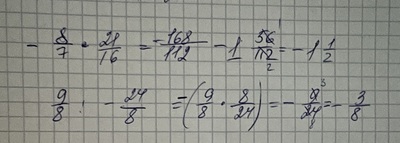 - 8/7 · 21/16 = -168/112 - 1 56/112 = -1 1/2
9/8 : - 24/8 = -(9/8 · 8/24) = - 9/24 = - 3/8